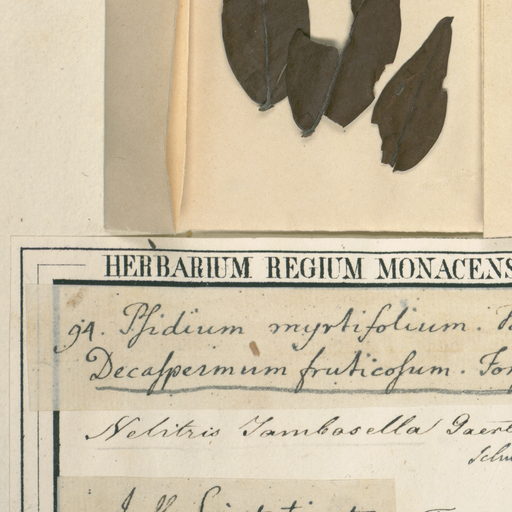 HERBARIUM REGIUM MONACENS
94. Psidium myrtifolium.
Decaspermum fruticosum. For
Nelitris Jambosella Gaert
Schu